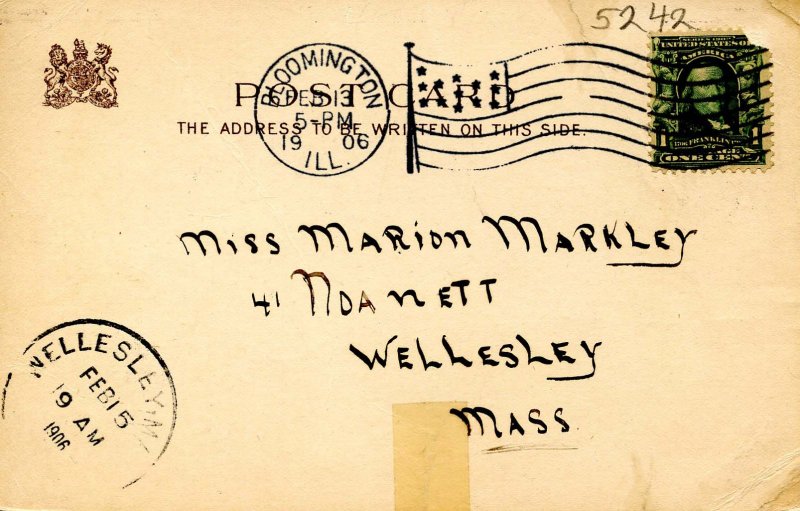 5242
BLOOMINGTON
FEB 13
5-PM
19 06
ILL.
POST CARD
THE ADDRESS TO BE WRITTEN ON THIS SIDE.
SERIES 1902
UNITED STATES OF
AMERICA
FRANKLIN
ONE CENT
Miss Marion Markley
41 Noanett
Wellesley
Mass
WELLESLEY, M
FEB 15
9 AM
1906